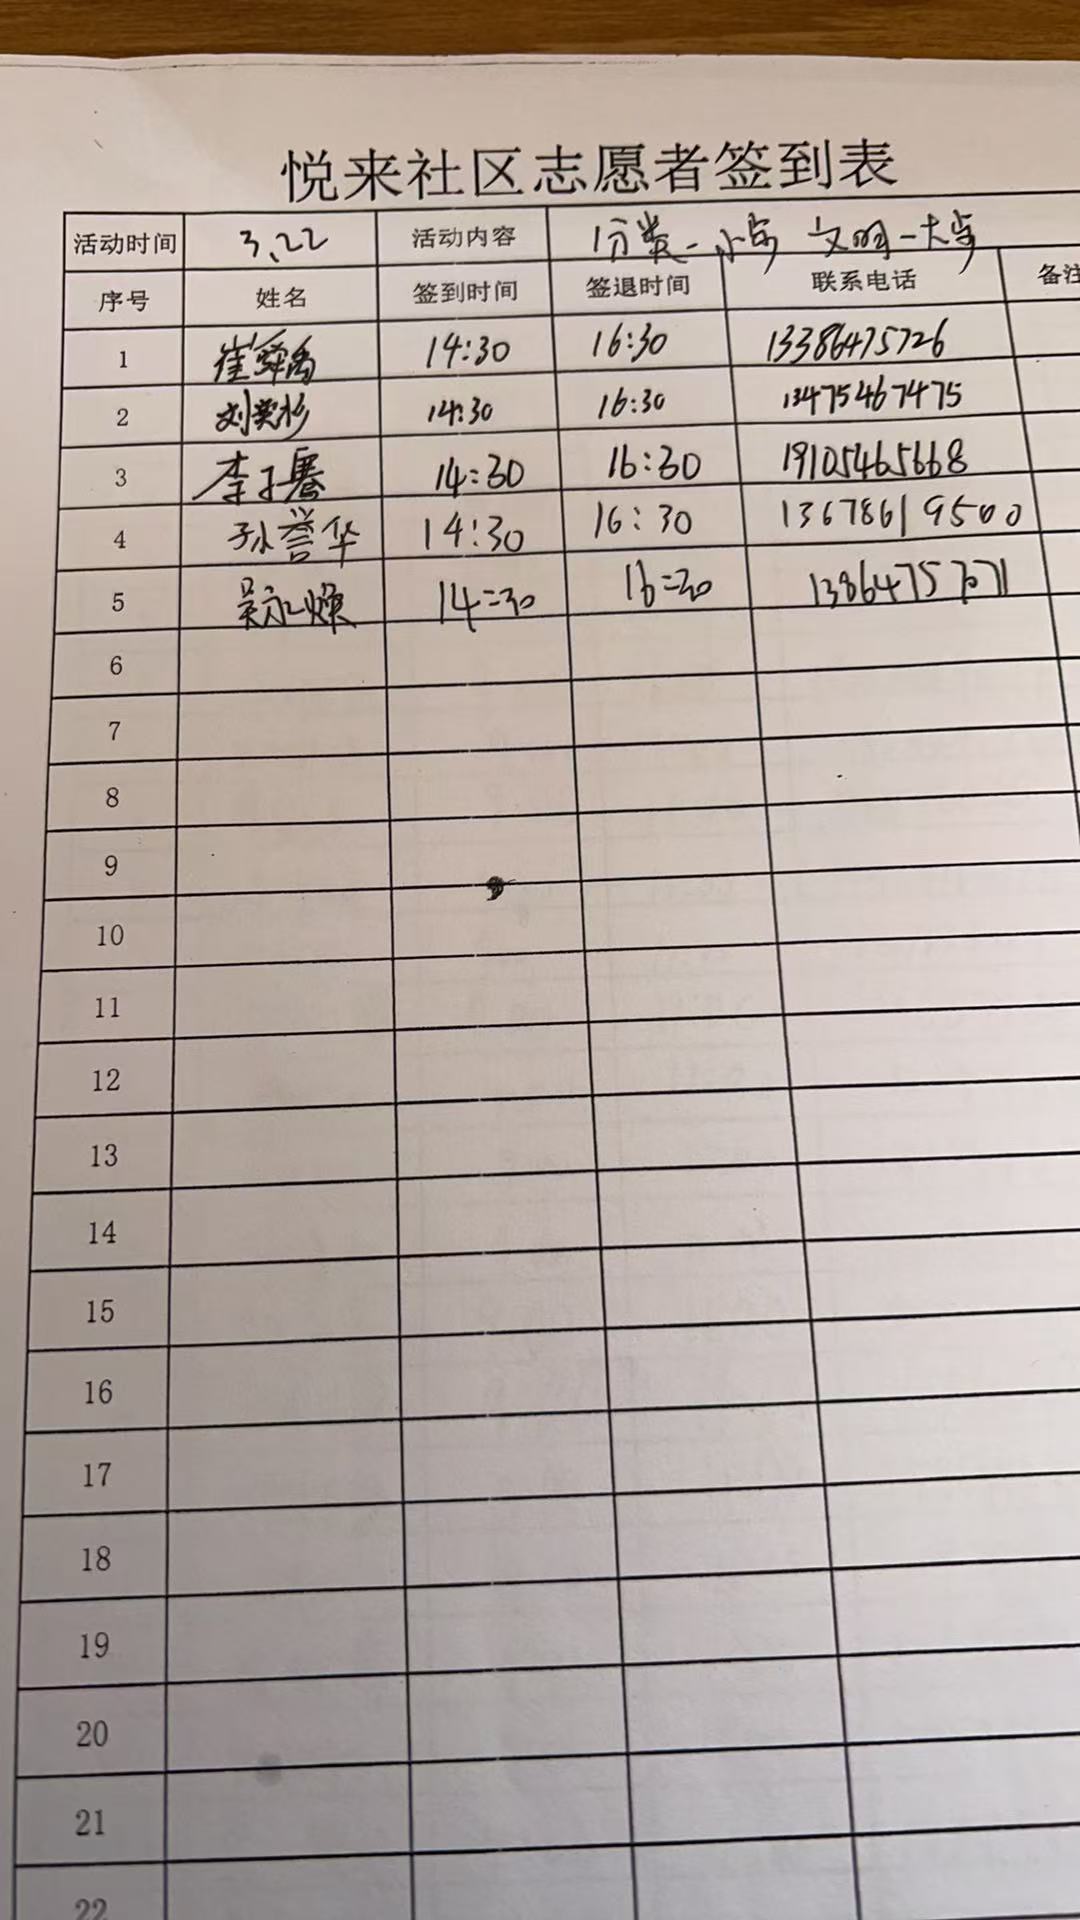 悦来社区志愿者签到表
活动时间 3、22 活动内容 1分类一小步 文明一大步
序号 姓名 签到时间 签退时间 联系电话 备注
1 崔舜禹 14:30 16:30 13386475726
2 刘奕杉 14:30 16:30 13475467475
3 李子骞 14:30 16:30 19105465668
4 孙誉华 14:30 16:30 13678619500
5 吴永焕 14:30 16:30
6
7
8
9
10
11
12
13
14
15
16
17
18
19
20
21
22